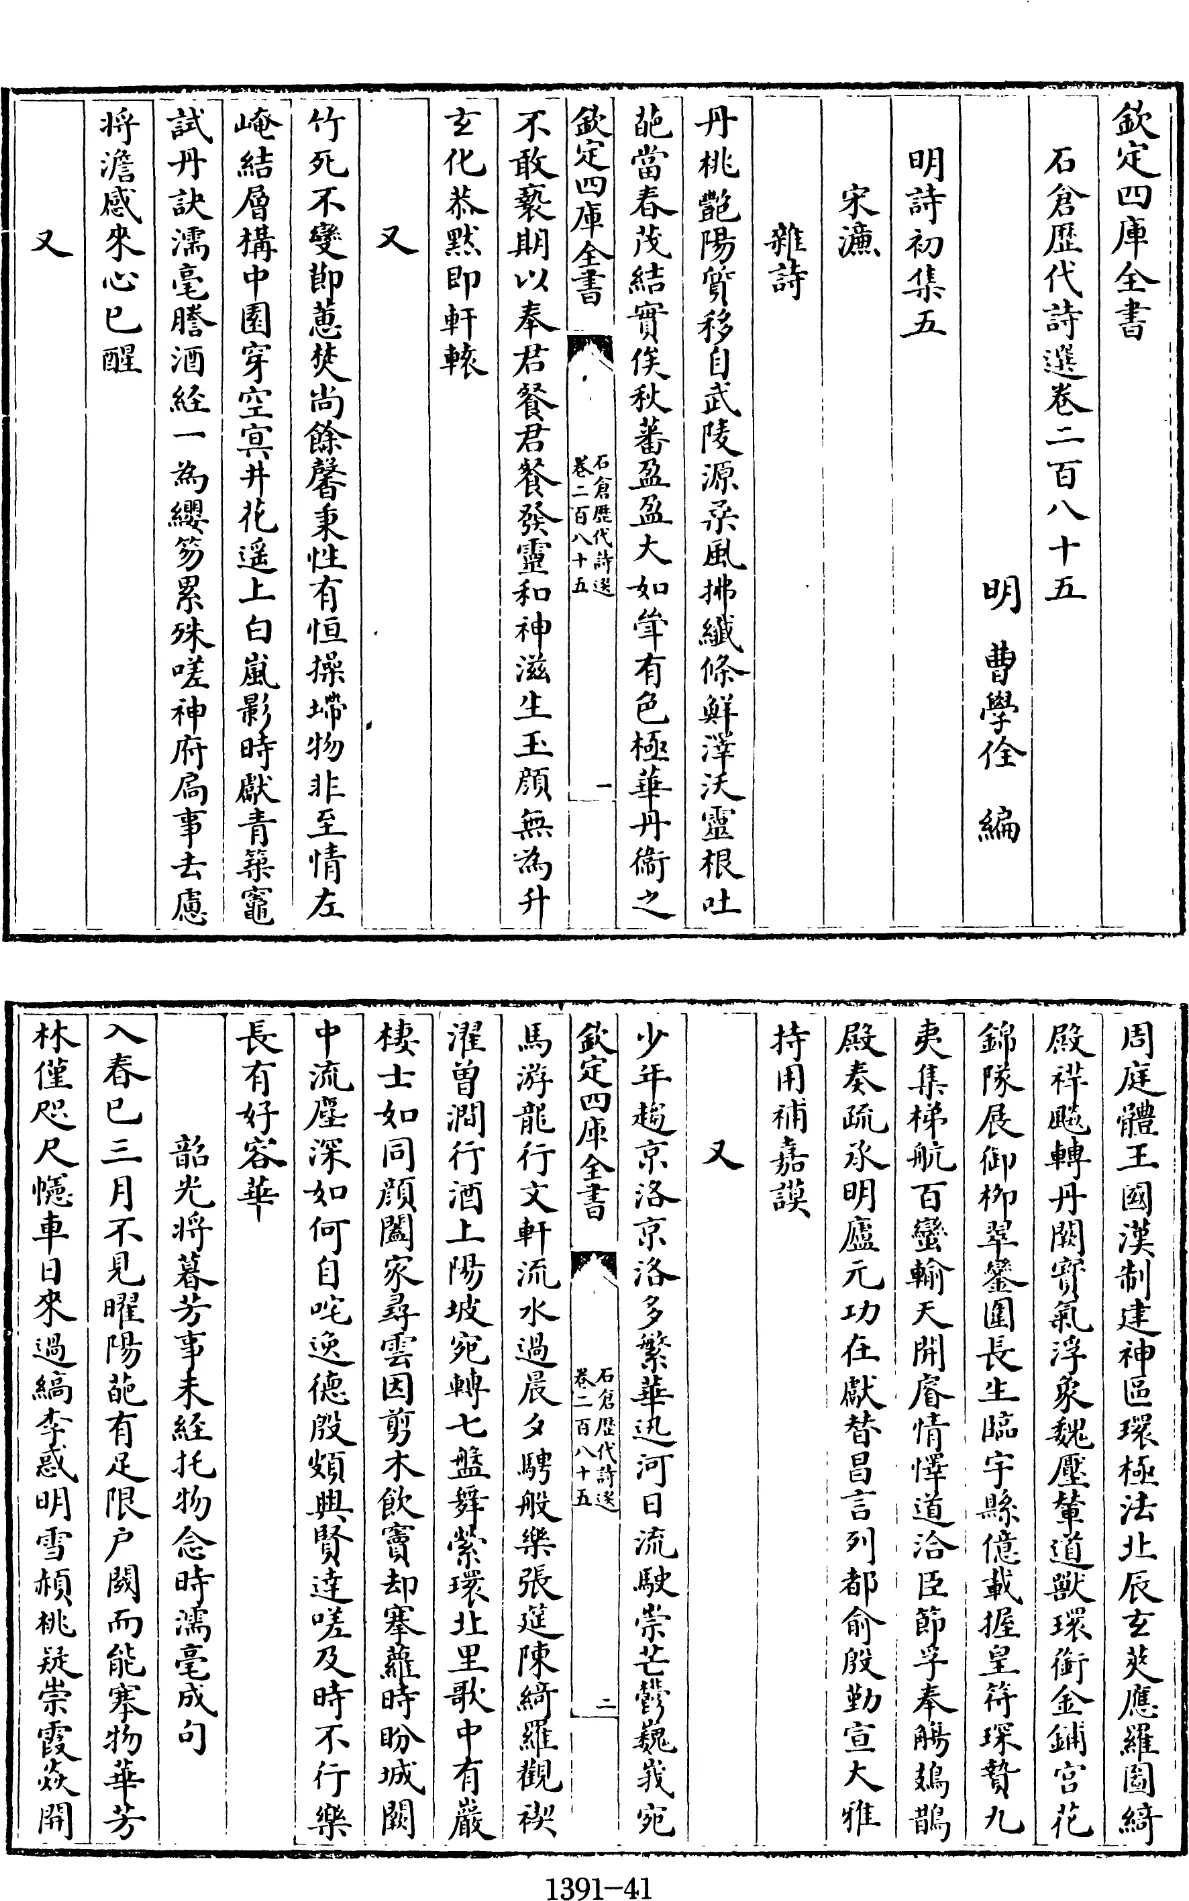 欽定四庫全書
石倉歷代詩選卷二百八十五
明 曹學佺 編
明詩初集五
宋濂
雜詩
丹桃艷陽質移自武陵源柔風拂纖條鮮澤沃靈根吐
葩當春茂結實俟秋蕃盈盈大如斝有色極華丹銜之
欽定四庫全書
石倉歷代詩選
卷二百八十五
一
不敢褻期以奉君餐君餐發靈和神滋生玉顔無為升
玄化恭默即軒轅
又
竹死不變節蕙焚尚餘馨秉性有恒操墆物非至情左
崦結層構中園穿空㝠井花遥上白嵐影時獻青築竈
試丹訣濡毫謄酒經一為纓笏累殊嗟神府扃事去慮
将澹感來心已醒
又
周庭體王國漢制建神區環極法北辰玄莢應羅圖綺
殿祥飈轉丹闕寳氣浮象魏壓輦道獸環銜金鋪宫花
錦隊展御栁翠鑾圍長生臨宇縣億載握皇符琛贄九
夷集梯航百蠻輸天開睿情懌道洽臣節孚奉觴鳷鵲
殿奏疏承明廬元功在獻替昌言列都俞殷勤宣大雅
持用補嘉謨
又
少年趨京洛京洛多繁華迅河日流駛崇芒鬱巍峩宛
欽定四庫全書
石倉歷代詩選
卷二百八十五
二
馬游龍行文軒流水過晨夕騁般樂張筵陳綺羅觀禊
濯曽澗行酒上陽坡宛轉七盤舞縈環北里歌中有巖
棲士如同顔闔家尋雲因剪木飲竇却搴蘿時盼城闕
中流塵深如何自咤逸德殷頗興賢達嗟及時不行樂
長有好容華
韶光将暮芳事未經托物念時濡毫成句
入春已三月不見曜陽葩有足限户閾而能搴物華芳
林僅咫尺幰車日來過縞李惑明雪頳桃疑崇霞焱開
1391-41